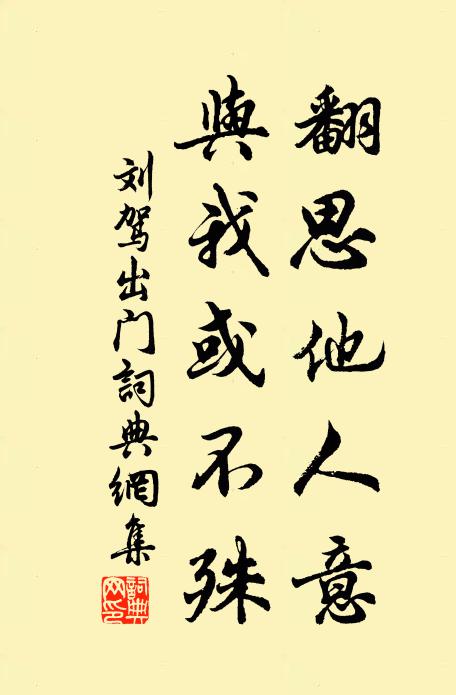 翻思他人意
與我或不殊
刘驾出门詞典網集
詞典網印